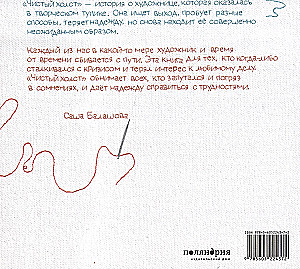 "Чистый холст" – история о художнице, которая оказалась
в творческом тупике. Она ищет выход, пробует разные
способы, теряет надежду, но снова находит её совершенно
неожиданным образом.
Каждый из нас в какой-то мере художник и время
от времени сбивается с пути. Эта книга для тех, кто когда-либо
сталкивался с кризисом и терял интерес к любимому делу.
"Чистый холст" обнимает всех, кто запутался и погряз
в сомнениях, и даёт надежду справиться с трудностями.
Саша Балашова
поляндрия
издательский дом